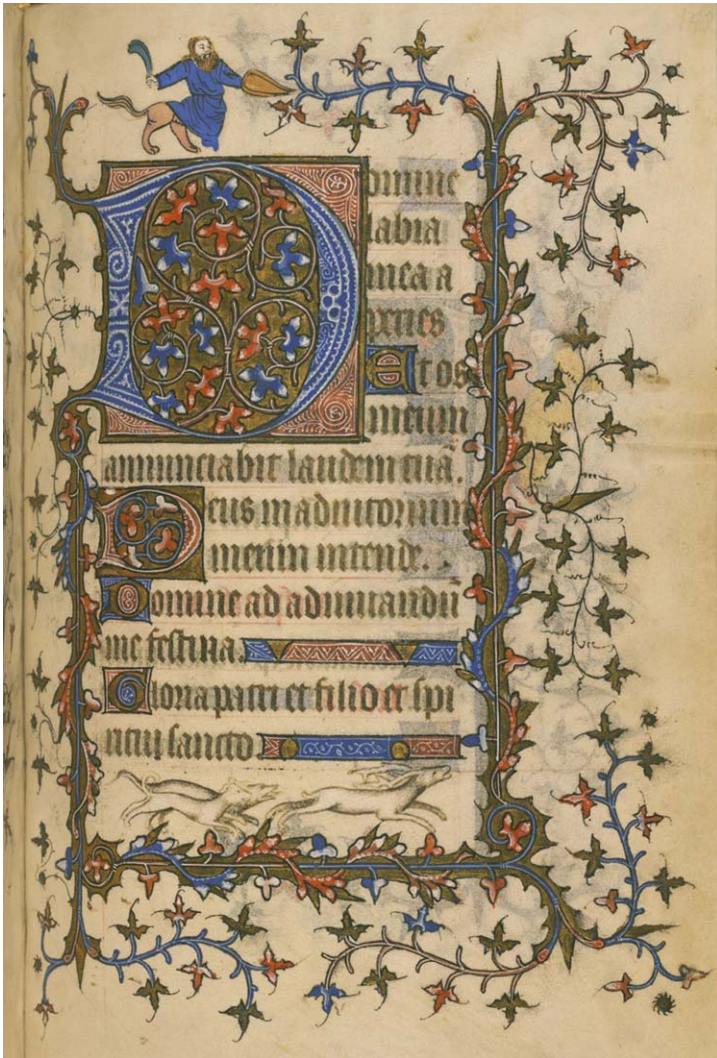 Domine
labia
mea a
peries
Et os
meum
annunciabit laudem tuā.
Deus in adiutorium
meum intende.
Domine ad adiuuandū
me festina.
Gloria patri et filio et spi
ritui sancto